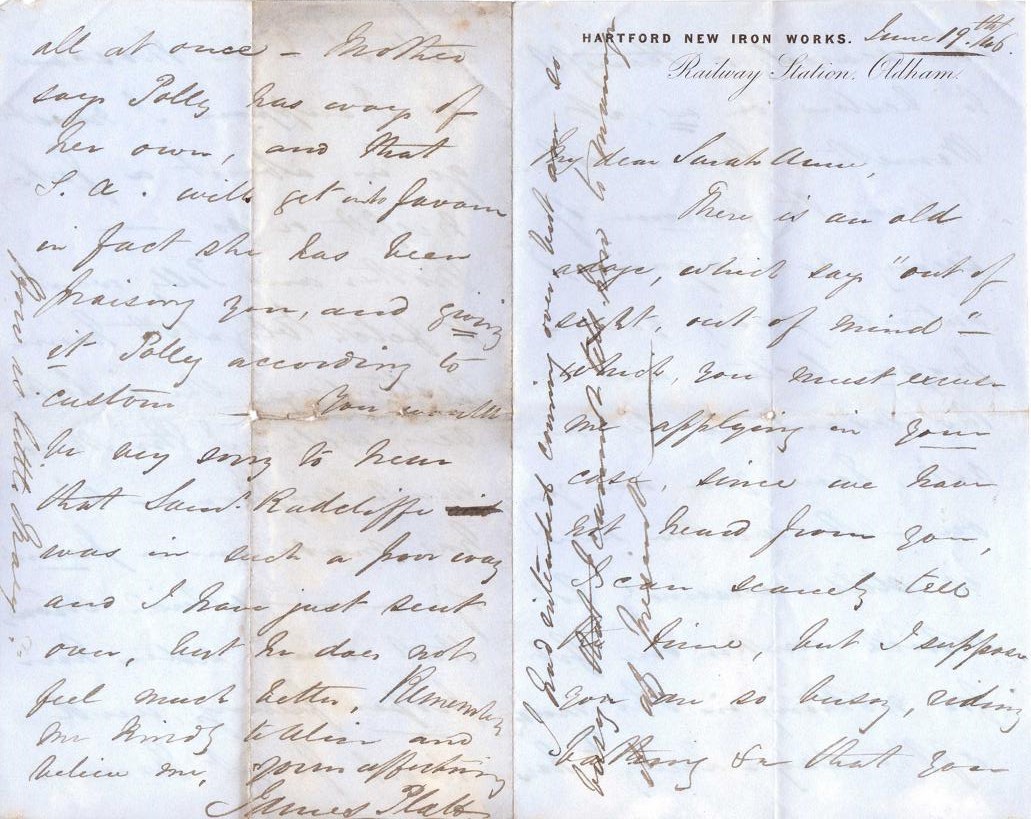 HARTFORD NEW IRON WORKS. June 19th /46.
Railway Station, Oldham.
My dear Sarah Anne,
There is an old
adage, which say "out of
sight, out of mind" —
which, you must excuse
me applying in your
case, since we have
not heard from you,
I can scarcely tell
time, but I suppose
you are so busy, riding
bathing &c that you
I had intended coming over but am so
busy that I cannot tell how to manage
it
all at once — Mother
says Polly has ways of
her own, and that
S. A. will get into favour
in fact she has been
praising you, and giving
it Polly according to
custom — You would
be very sorry to hear
that Saml. Radcliffe
was in such a poor way
and I have just sent
over, but he does not
feel much better, Remember
me kindly to Alice and
believe me, yours affectiony
James Platt
how is little